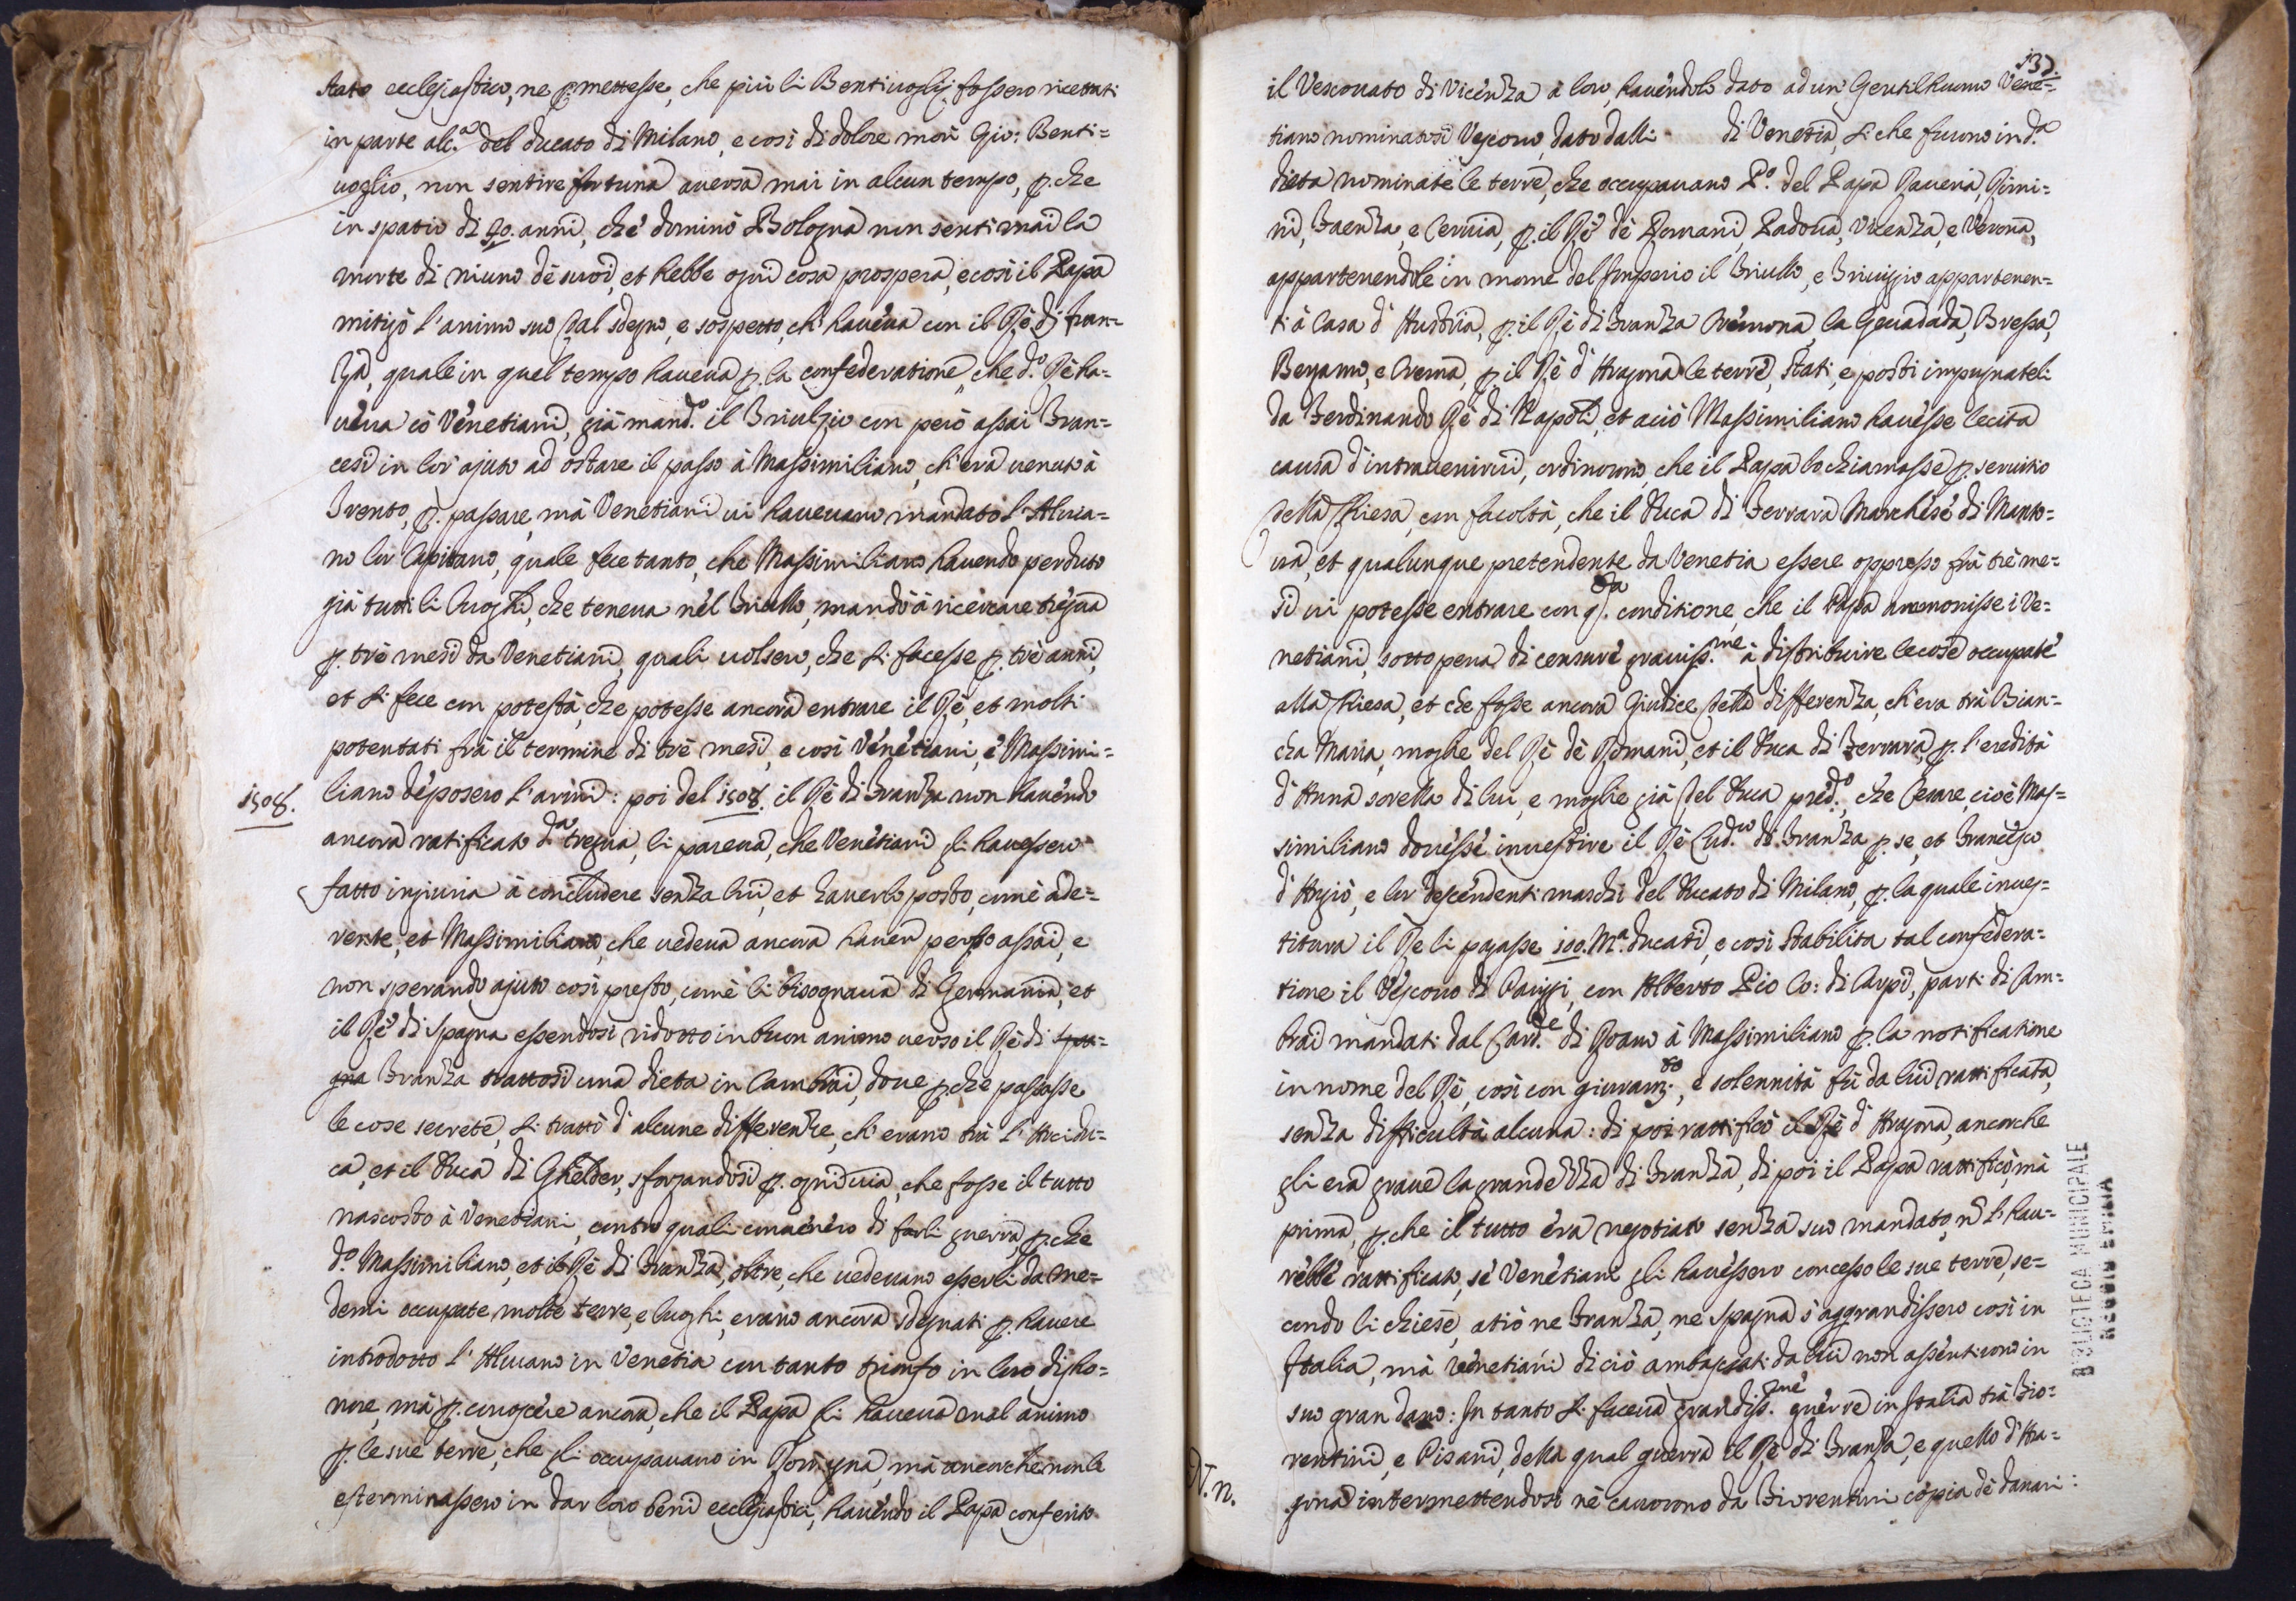 stato ecclesiastico, ne p.mettesse, che più li Bentiuoglij fossero ricettati
in parte alc.a del Ducato di Milano, e così di dolore morì Gio: Benti=
uoglio, non sentire fortuna auersa mai in alcun tempo, p. che
in spatio di 40. anni, che dominò Bologna non sentì mai la
morte di niuno de suoi, et hebbe ogni cosa prospera, e così il Papa
mitigò l'animo suo dal sdegno, e sospetto, ch' haueua con il Rè di Fran=
za, quale in quel tempo haueua p. la confederatione, che d.o Rè ha=
ueua cò Venetiani, già mand.o il Triulzio con però assai Fran=
cesi in lor' ajuto ad ostare il passo à Massimiliano, ch' era uenuto à
Trento, p. passare, mà Venetiani ui haueuano mandato l'Aluia=
no lor Capitano, quale fece tanto, che Massimiliano hauendo perduto
già tutti li luoghi, che teneua nel Friullo, mandò à ricercare tregua
p. trè mesi da Venetiani, quali uolsero, che si facesse p. trè anni,
et si fece con potestà, che potesse ancora entrare il Rè, et molti
potentati frà il termine di trè mesi, e così Venetiani, e Massimi=
1508.
liano deposero l'armi: poi del 1508. il Rè di Franza non hauendo
ancora ratificato d.a tregua, li pareua, che Venetiani gli hauessero
fatto ingiuria à concludere senza lui, et hauerlo posto, come ade=
rente, et Massimiliano, che uedeua ancora hauer perso assai, e
non sperando ajuto così presto, come li bisognaua di Germania, et
il Rè di Spagna essendosi ridotto in buon animo uerso il Rè di Spa=
gna Franza trattosi una dieta in Cambrai, doue p.che passasse
le cose secrete, si trattò d' alcune differenze, ch' erano trà l' Arcidu=
ca, et il Duca di Ghelder, sforzandosi p. ogni uia, che fosse il tutto
nascosto à Venetiani, contro quali conuenero di farli guerra, p.che
d.o Massimiliano, et il Rè di Franza, oltre, che uedeuano esserli da me=
demi occupate molte terre, e luoghi, erano ancora sdegnati p. hauere
introdotto l' Aluiano in Venetia con tanto trionfo in loro disho=
nore, mà p. conoscere ancora, che il Papa gli haueua mal animo
p. le sue terre, che gli occupauano in Romagna, mà ancorche non le
esterminassero in dar loro beni ecclesiastici, hauendo il Papa conferito
137.
il Vescouato di Vicenza à loro, hauendolo dato ad un Gentilhuomo Vene=
tiano nominatosi Vescouo, dato dalli di Venetia, si che furono in d.a
dieta nominate le terre, che occupauano P.o del Papa Rauena, Rimi=
ni, Faenza, e Ceruia, p. il Rè de Romani, Padoua, Vicenza, e Verona,
appartenendole in nome del Imperio il Friullo, e Triuigio appartenen=
ti à Casa d' Austria, p. il Rè di Franza Cremona, la Geradada, Bressa,
Bergamo, e Crema, p. il Rè d' Aragona le terre, stati, e posti impugnateli
da Ferdinando Rè di Napoli, et aciò Massimiliano hauesse lecita
causa d'intrauenirui, ordinorno, che il Papa lo chiamasse p. seruitio
della Chiesa, con facoltà, che il Duca di Ferrara Marchese di Manto=
ua, et qualunque pretendente da Venetia essere oppresso frà trè me=
si ui potesse entrare con q.sta conditione, che il Papa ammonisse i Ve=
netiani, sotto pena di censure grauiss.me à distribuire le cose occupate
alla Chiesa, et che fosse ancora Giudice della differenza, ch' era trà Bian=
cha Maria, moglie del Rè de Romani, et il Duca di Ferrara, p. l'eredità
d' Anna sorella di lui, e moglie già del Duca pred.o, che Cesare, cioè Mas=
similiano douesse inuestire il Rè Lud.co di Franza p. se, et Francesco
d' Angiò, e lor descendenti maschi del Ducato di Milano, p. la quale inues=
titura il Rè li pagasse 100. M.a ducati, e così stabilita tal confedera=
tione il Vescouo di Pariggi, con Alberto Pio Co: di Carpi, partì di Cam=
brai mandati dal Card.le di Roano à Massimiliano p. la notificatione
in nome del Rè, così con giuram.to, e solennità fù da lui rattificata,
senza difficultà alcuna: di poi rattificò il Rè d' Aragona, ancorche
gli era graue la grandezza di Franza, di poi il Papa rattificò, mà
prima, p.che il tutto era negotiato senza suo mandato, n' l' hau=
rebbe rattificato, se Venetiani gli hauessero concesso le sue terre, se=
condo li chiese, atiò ne Franza, ne Spagna s'aggrandissero così in
Italia, mà Venetiani di ciò ambasciati da lui non assentirono in
suo gran dano: In tanto si faceua grandiss.me guerre in Italia trà Fio=
rentini, e Pisani, della qual guerra il Rè di Franza, e quello d' Ara=
N. n.
gona intermettendosi nè cauorono da Fiorentini copia de danari:
BIBLIOTECA MUNICIPALE
REGGIO EMILIA